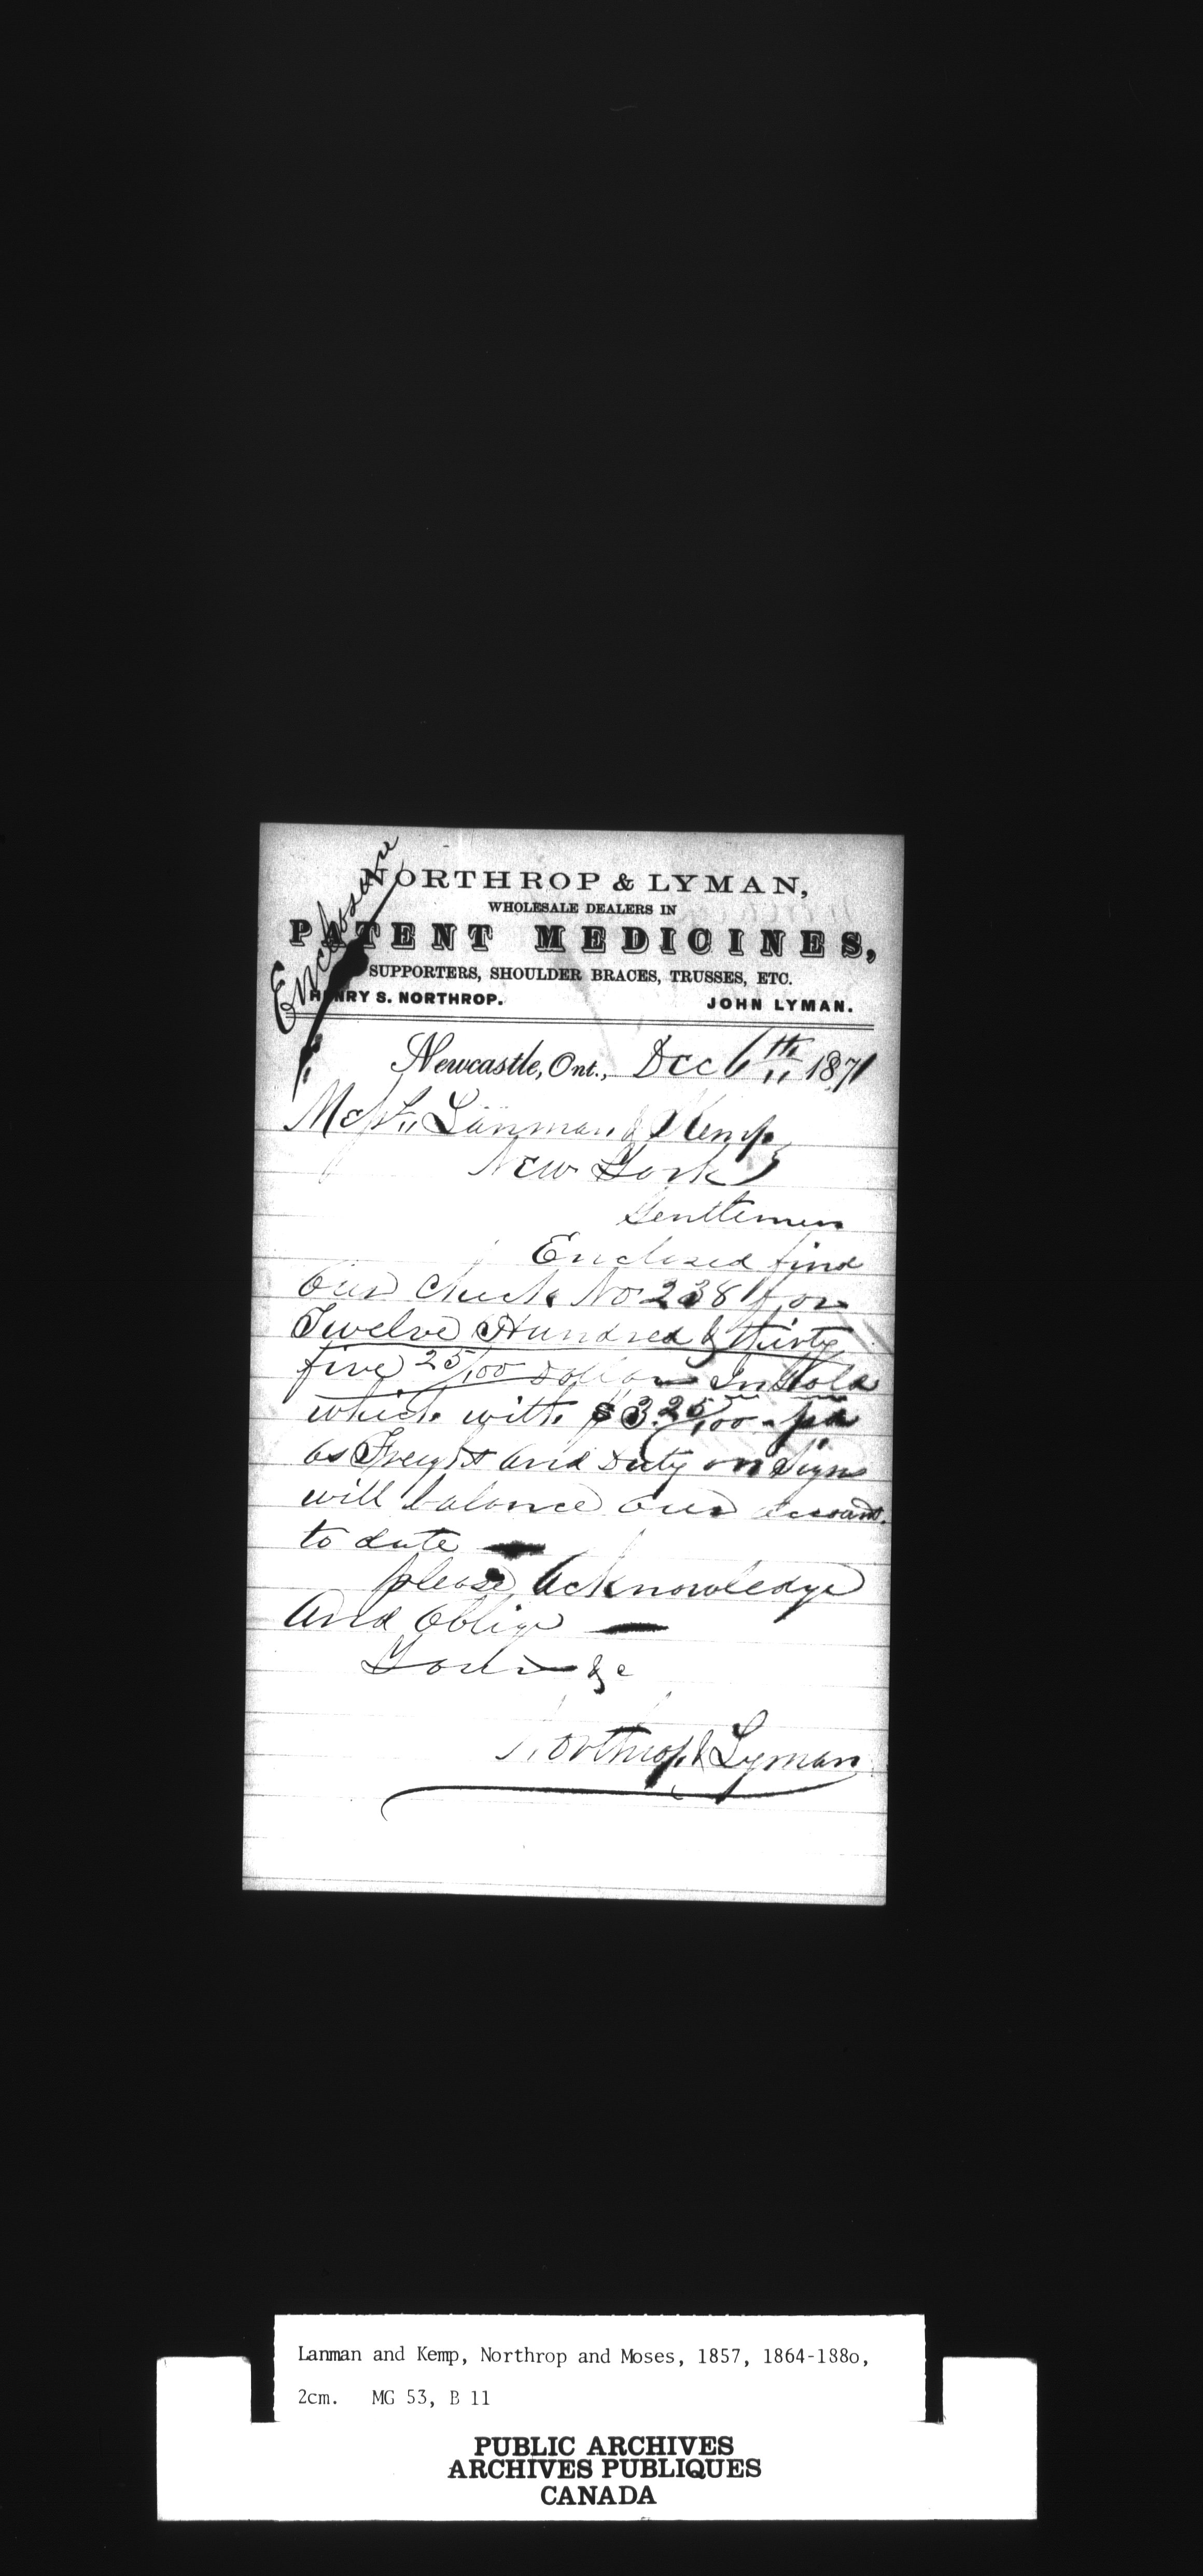 Enclosure
NORTHROP & LYMAN,
WHOLESALE DEALERS IN
PATENT MEDICINES,
SUPPORTERS, SHOULDER BRACES, TRUSSES, ETC.
HENRY S. NORTHROP. JOHN LYMAN.
Newcastle, Ont., Dec 6th 1871
Messrs Lanman & Kemp
New York
Gentlemen
Enclosed find
Our Check No 238 for
Twelve Hundred & thirty
five 25/100 Dollars In Gold
which with $3.25/100 pd
as Freight and Duty on Signs
will balance our account
to date
please Acknowledge
And Oblige
Yours &c
Northrop & Lyman
Lanman and Kemp, Northrop and Moses, 1857, 1864-188o,
2cm. MG 53, B 11
PUBLIC ARCHIVES
ARCHIVES PUBLIQUES
CANADA